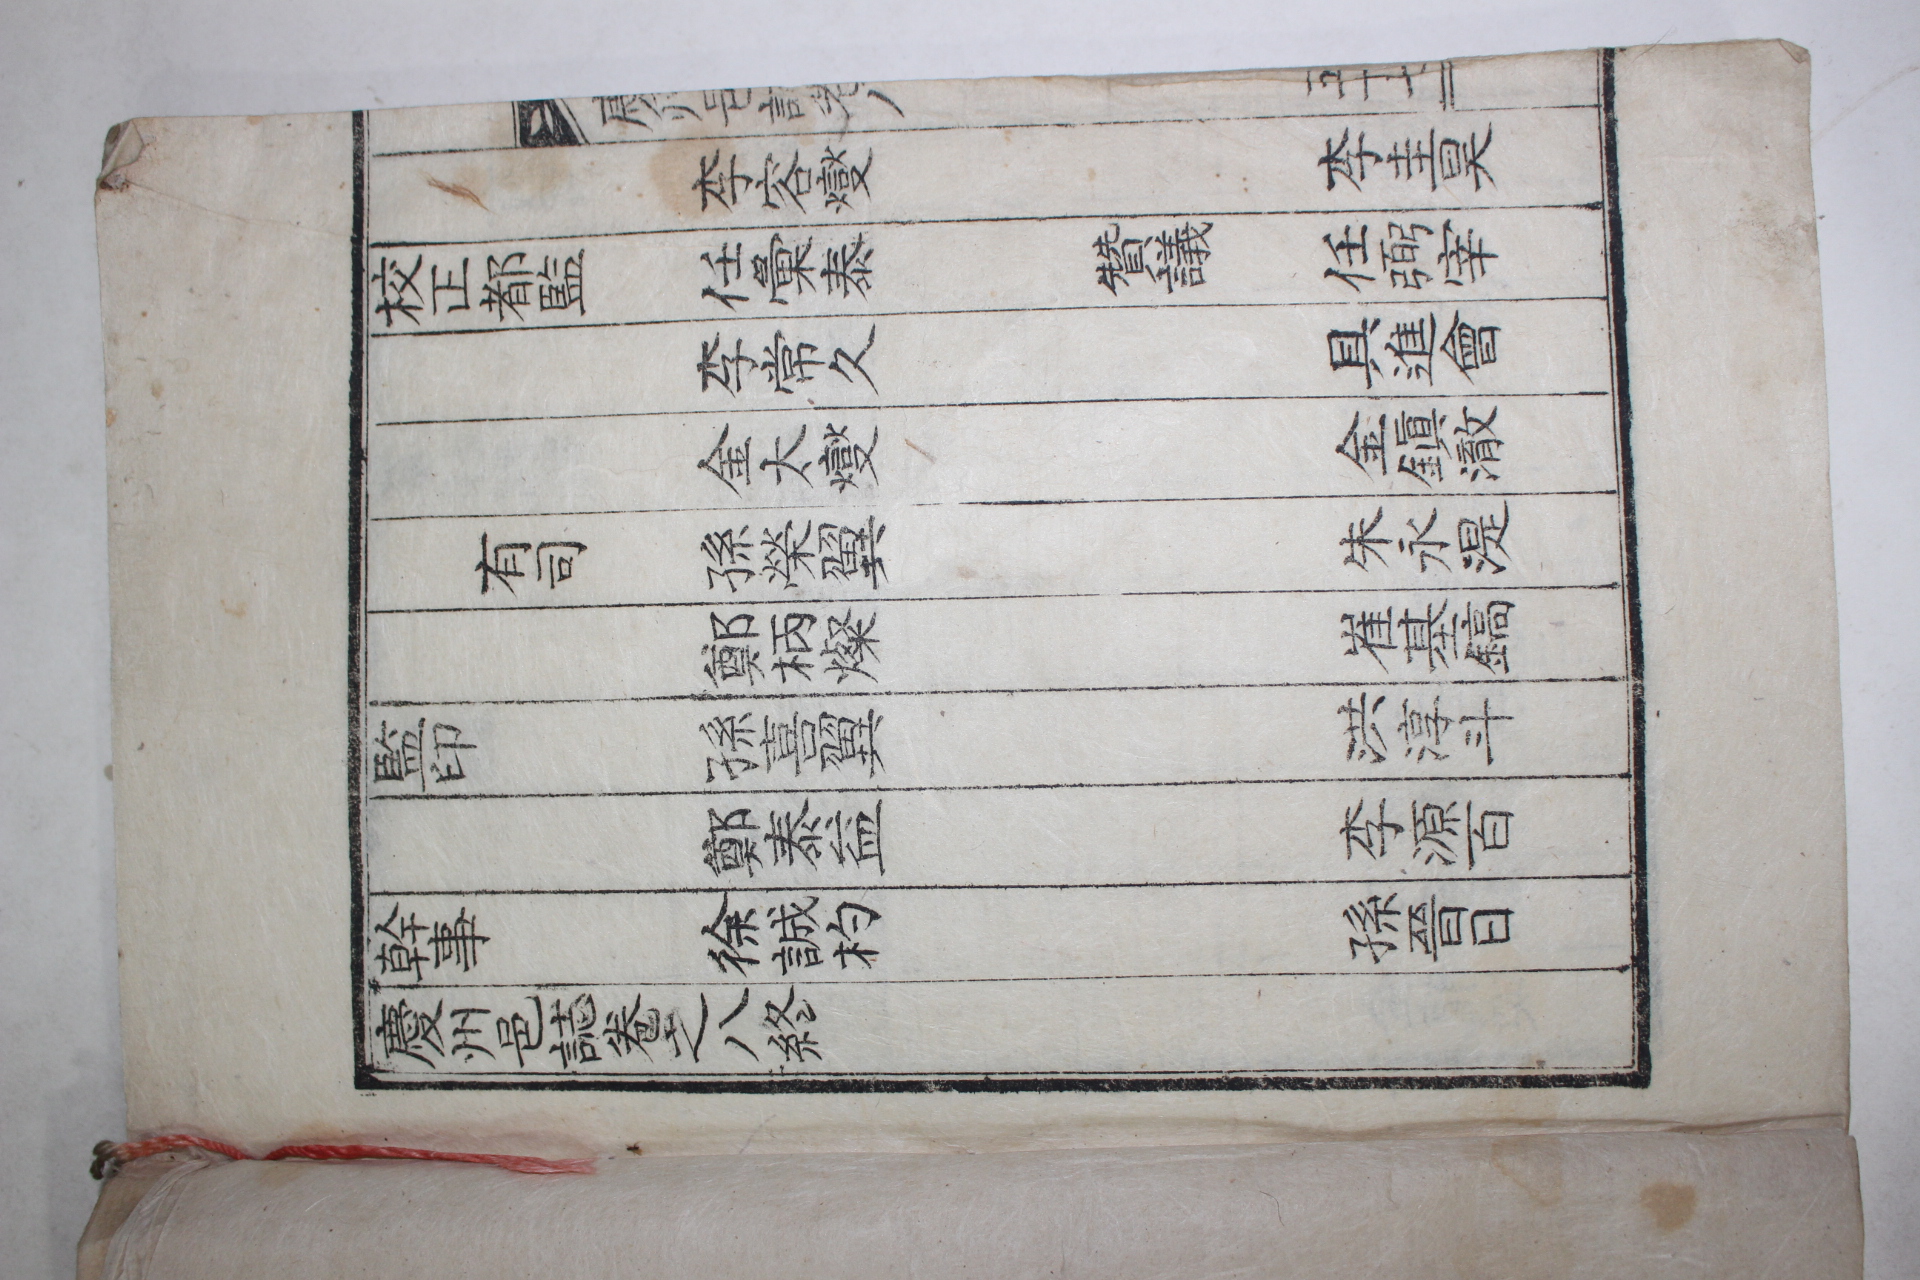 李容燮 李圭昊
校正都監 任彙泰 贊議 任弼宰
李常久 具進會
金太燮 金鎭澈
有司 孫榮翼 朱永湜
鄭柄燦 崔基鎬
監印 孫喜翼 洪淳斗
鄭泰益 李源百
幹事 徐誠杓 孫晉日
慶州邑誌卷之八終